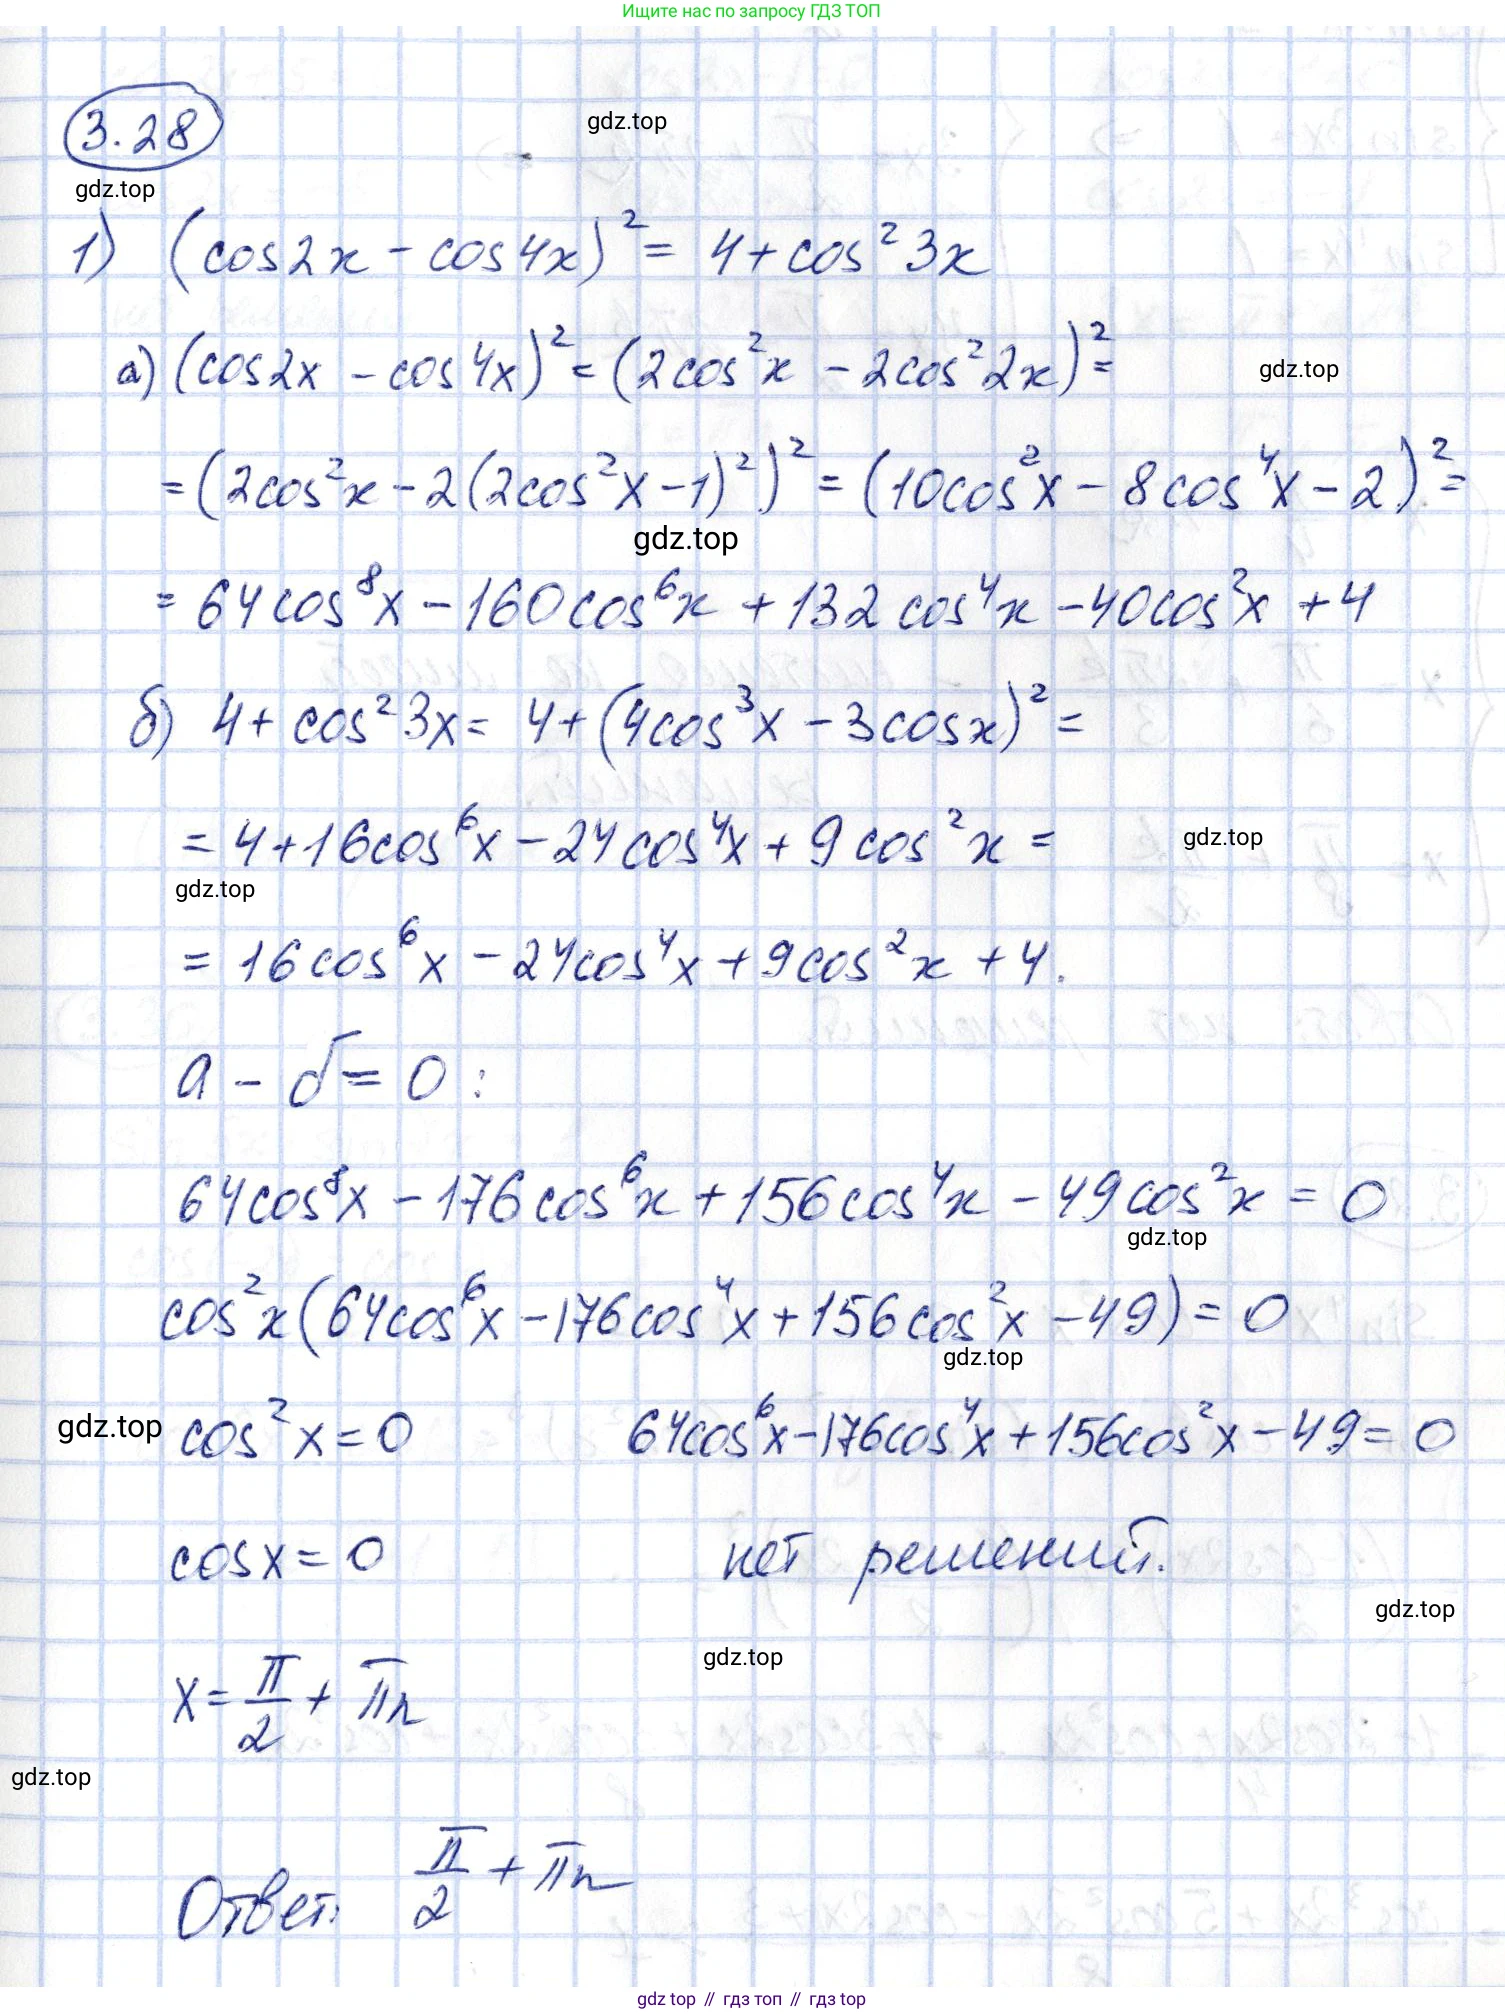 Ищите нас по запросу ГДЗ ТОП
3.28
gdz.top
gdz.top
1) (cos2x - cos4x)² = 4 + cos²3x
а) (cos2x - cos4x)² = (2cos²x - 2cos²2x)² =
gdz.top
= (2cos²x - 2(2cos²x - 1)²)² = (10cos²x - 8cos⁴x - 2)² =
gdz.top
= 64cos⁸x - 160cos⁶x + 132cos⁴x - 40cos²x + 4
б) 4 + cos²3x = 4 + (4cos³x - 3cosx)² =
= 4 + 16cos⁶x - 24cos⁴x + 9cos²x =
gdz.top
gdz.top
= 16cos⁶x - 24cos⁴x + 9cos²x + 4.
а - б = 0 :
64cos⁸x - 176cos⁶x + 156cos⁴x - 49cos²x = 0
gdz.top
cos²x(64cos⁶x - 176cos⁴x + 156cos²x - 49) = 0
gdz.top
gdz.top
cos²x = 0 64cos⁶x - 176cos⁴x + 156cos²x - 49 = 0
cosx = 0 нет решений.
gdz.top
gdz.top
x = π/2 + πn
gdz.top
Ответ: π/2 + πn
gdz.top // гдз топ // гдз top